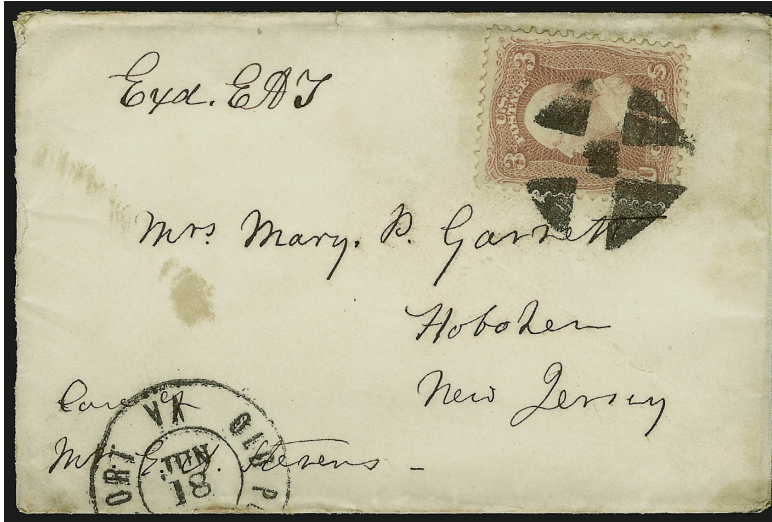 Exd. EAJ
3 U.S. POSTAGE 3 U S
Mrs Mary. P. Garnett
Hoboken
New Jersey
Care of
Mrs E. A. Stevens -
OLD PO ORT VA
JUN
18